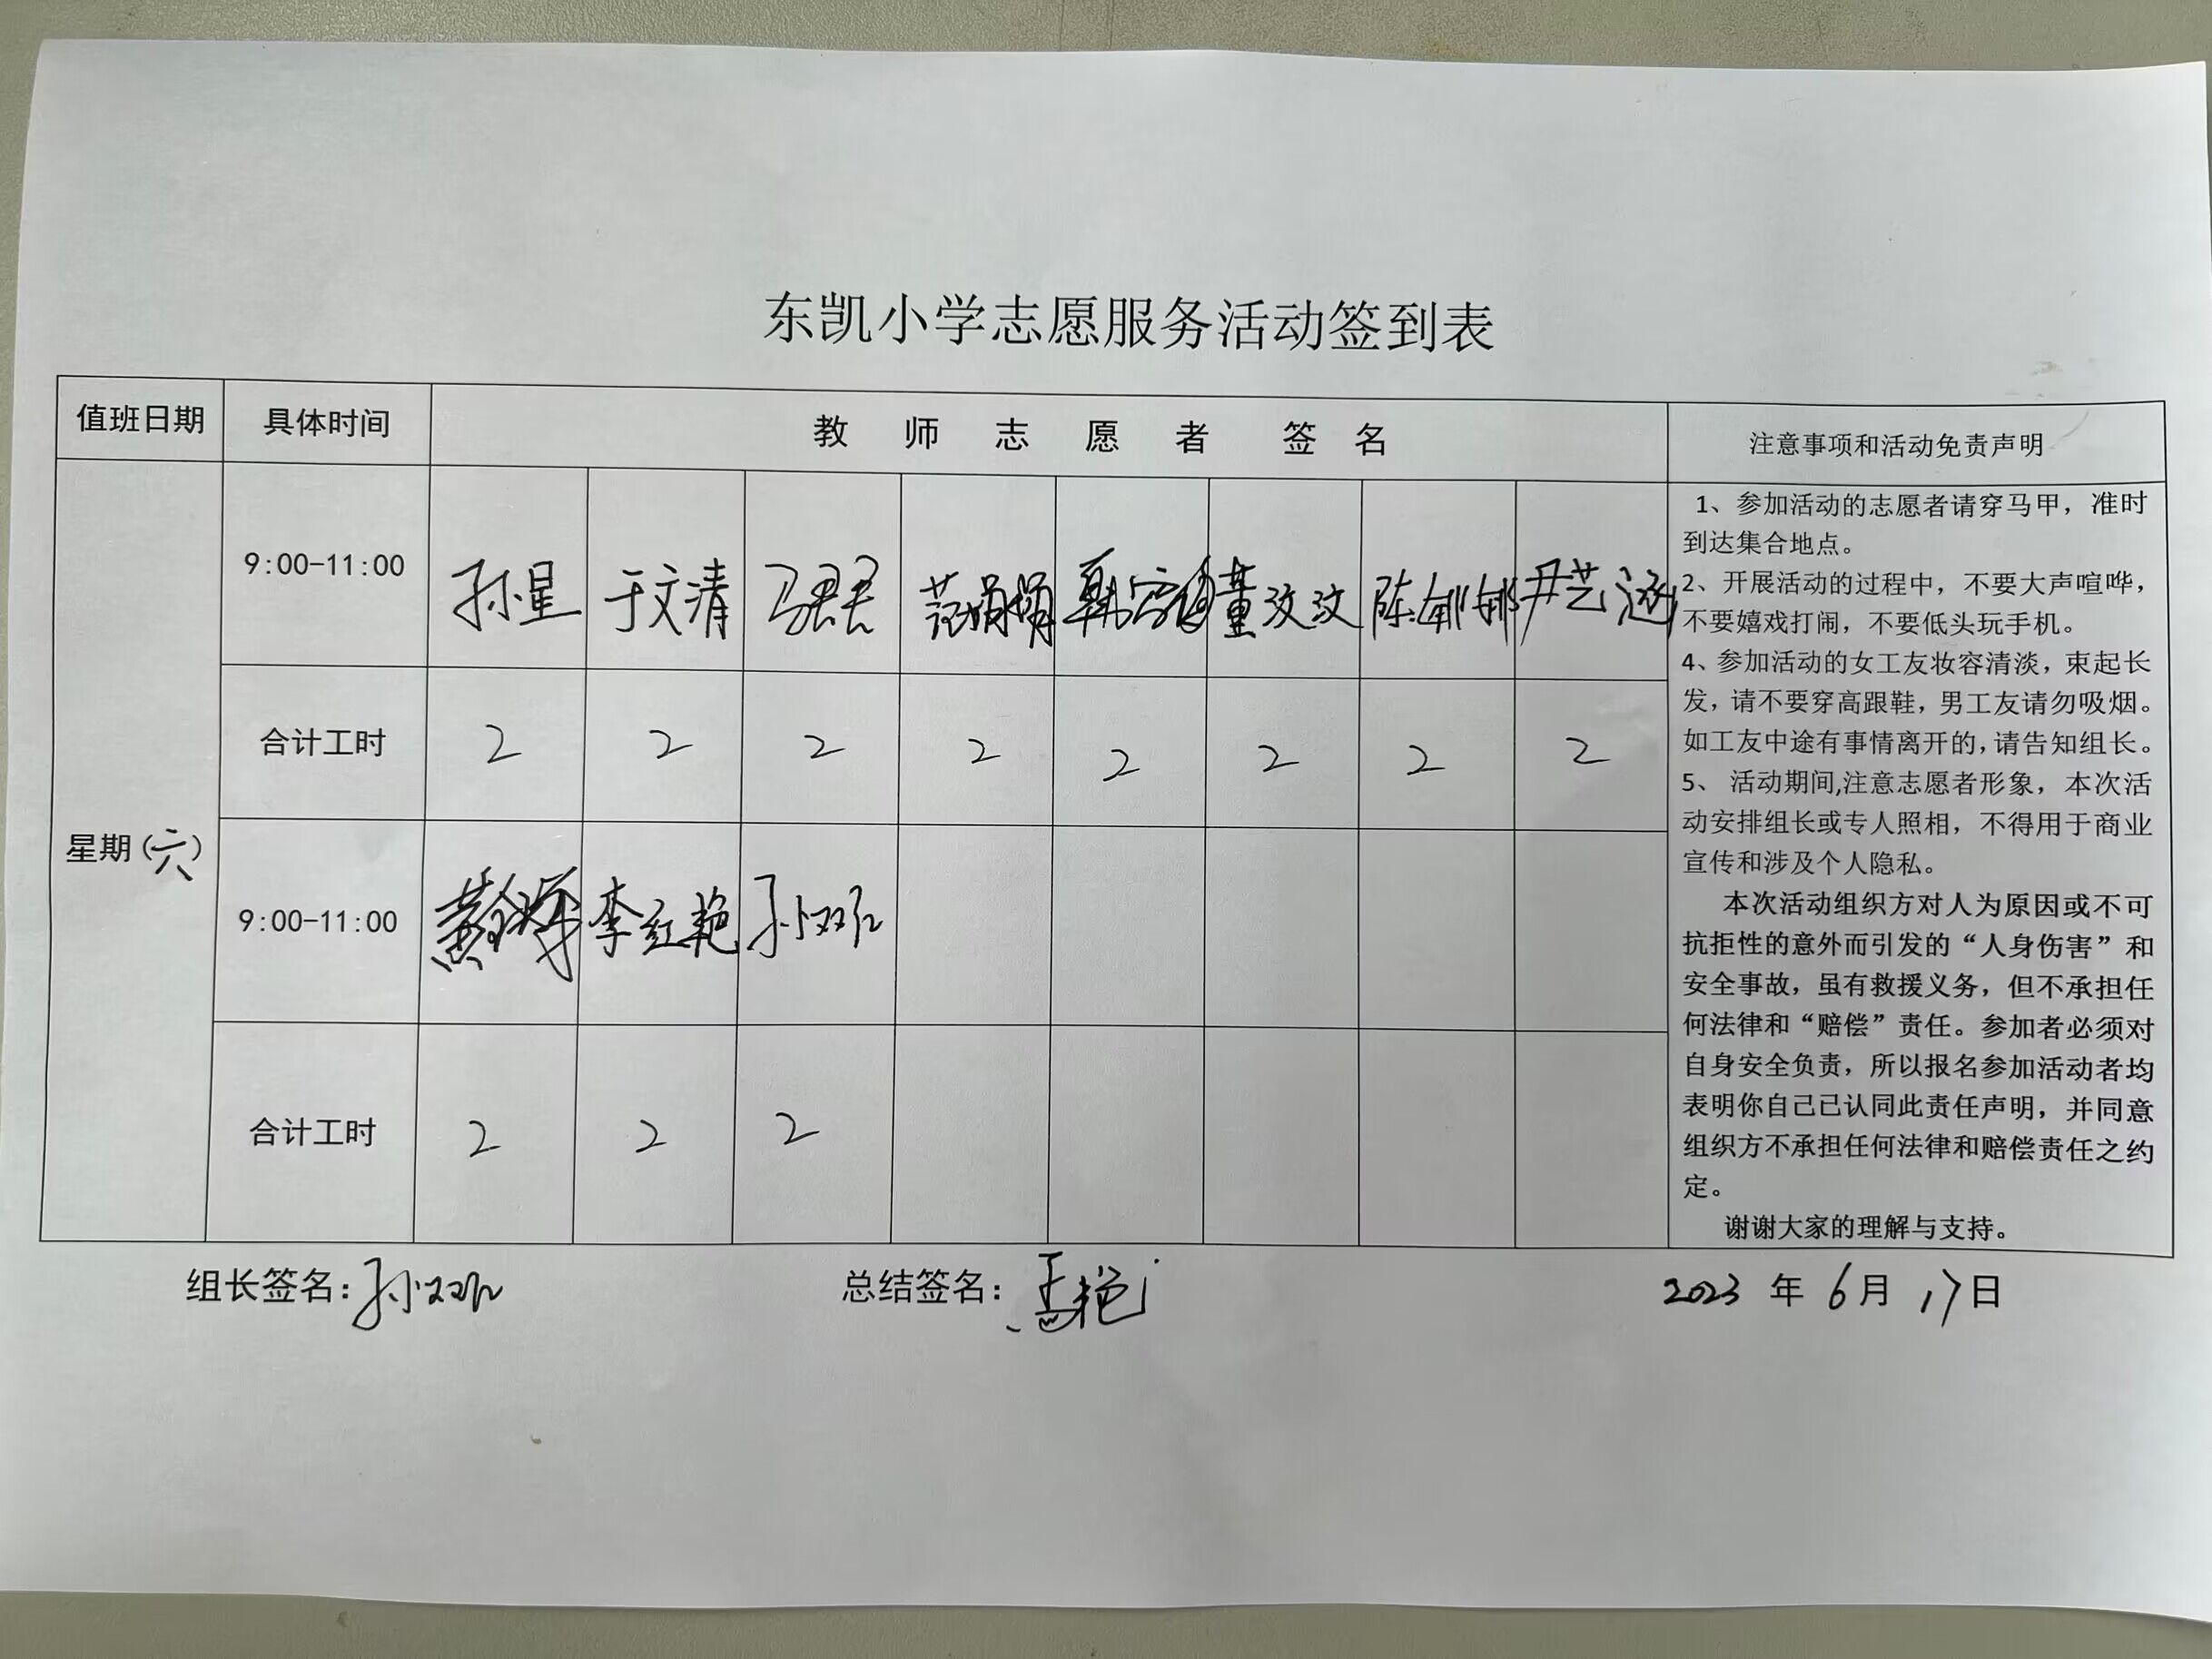 东凯小学志愿服务活动签到表
值班日期 具体时间 教师志愿者签名 注意事项和活动免责声明
星期(六)
9:00-11:00 孙星 于文清 马君君 范娟娟 韩 董汶汶 陈娜娜 尹艺涵
合计工时 2 2 2 2 2 2 2 2
9:00-11:00 黄 李红艳 孙双
合计工时 2 2 2
1、参加活动的志愿者请穿马甲，准时
到达集合地点。
2、开展活动的过程中，不要大声喧哗，
不要嬉戏打闹，不要低头玩手机。
4、参加活动的女工友妆容清淡，束起长
发，请不要穿高跟鞋，男工友请勿吸烟。
如工友中途有事情离开的，请告知组长。
5、 活动期间,注意志愿者形象，本次活
动安排组长或专人照相，不得用于商业
宣传和涉及个人隐私。
本次活动组织方对人为原因或不可
抗拒性的意外而引发的“人身伤害”和
安全事故，虽有救援义务，但不承担任
何法律和“赔偿”责任。参加者必须对
自身安全负责，所以报名参加活动者均
表明你自己已认同此责任声明，并同意
组织方不承担任何法律和赔偿责任之约
定。
谢谢大家的理解与支持。
组长签名：孙双 总结签名： 2023 年 6 月 17 日